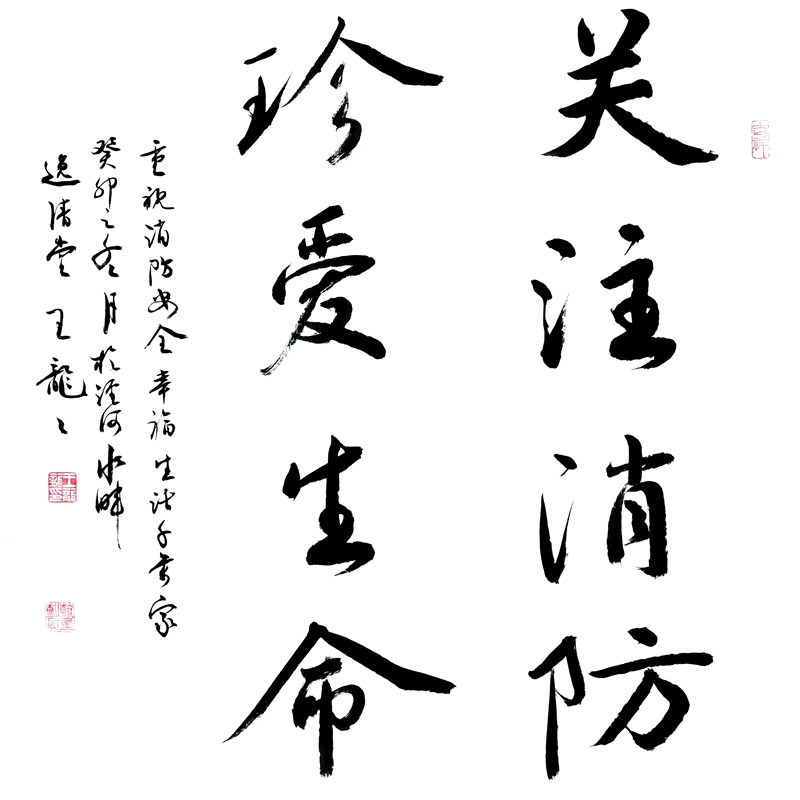 关注消防
珍爱生命
重视消防安全幸福生活千万家
癸卯之冬月於泾河水畔
逸清堂王龙龙